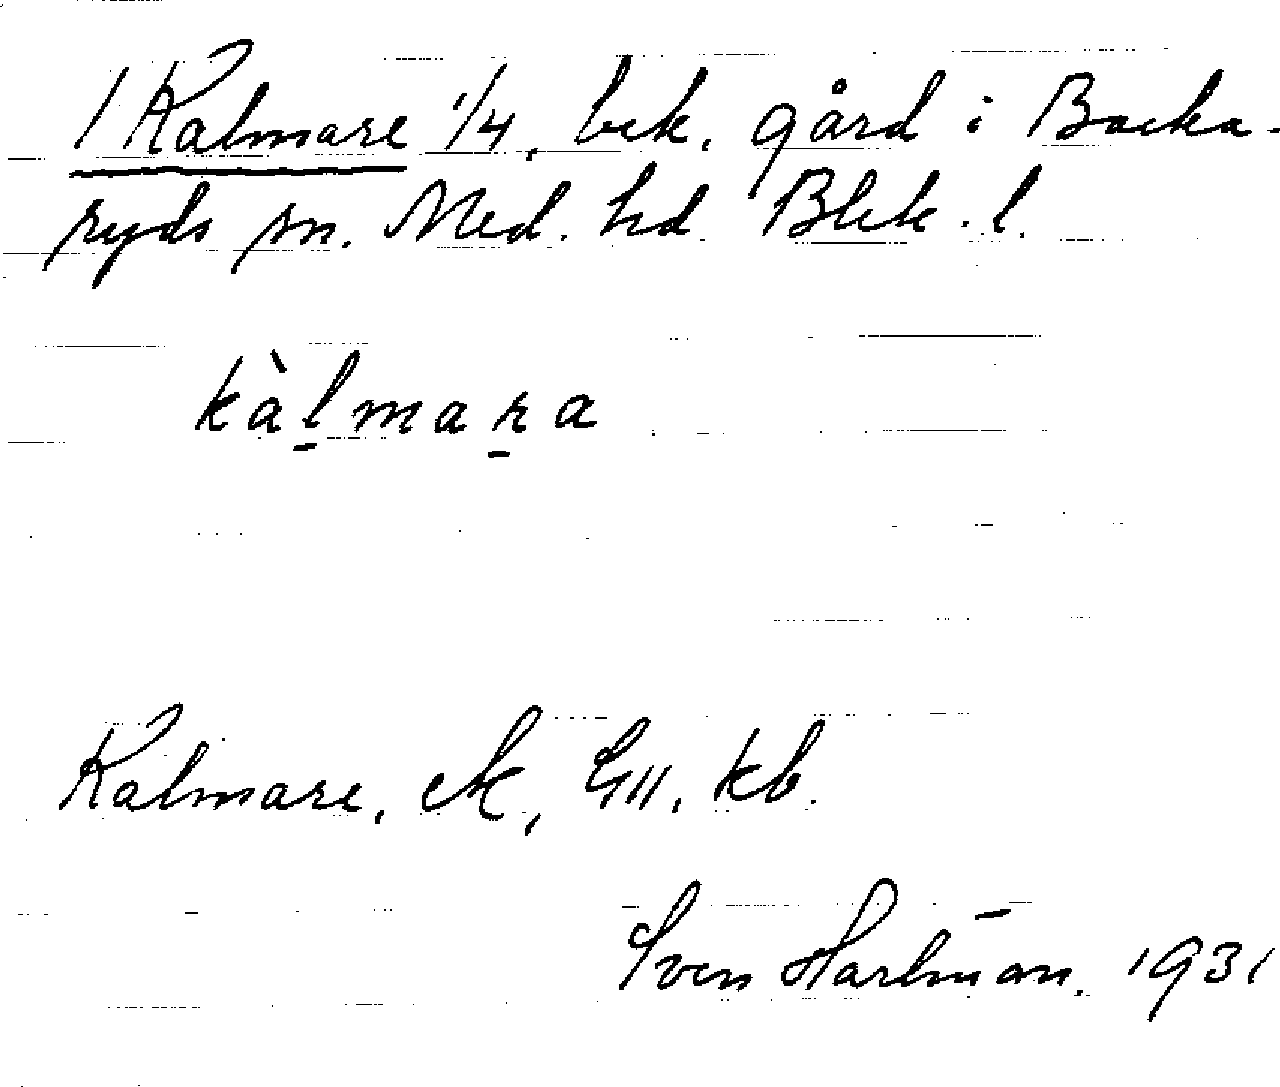 1 Kalmare 1/4, bek. gård i Backa-
ryds sn. Med. hd Blek. l.
kàlmara
Kalmare, ek, GII, kb.
Sven Hartman. 1931